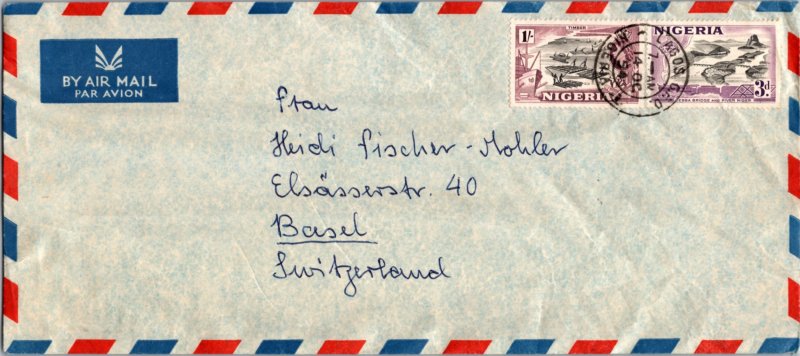 BY AIR MAIL
PAR AVION
1/-
TIMBER
NIGERIA
NIGERIA
3d
JEBBA BRIDGE AND RIVER NIGER
LAGOS G.P.O.
14 OC
NIGERIA
Frau
Heidi Fischer-Mohler
Elsässerstr. 40
Basel
Switzerland